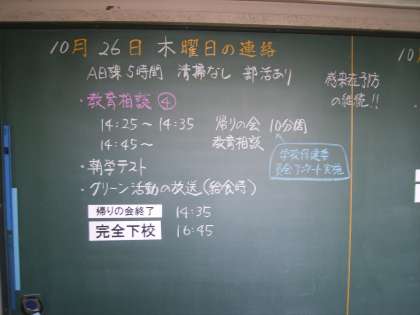 10月26日木曜日の連絡
A日課5時間 清掃なし 部活あり
感染症予防
の継続!!
・教育相談④
14:25〜14:35 帰りの会 10分間
14:45〜 教育相談
学校保健委
員会アンケート実施
・朝学テスト
・グリーン活動の放送(給食時)
帰りの会終了 14:35
完全下校 16:45
10月